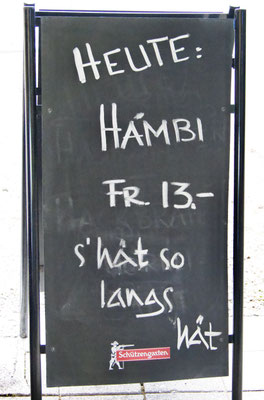 HEUTE:
HÁMBI
FR. 13.-
s'hät so
langs
hät
Schützengarten